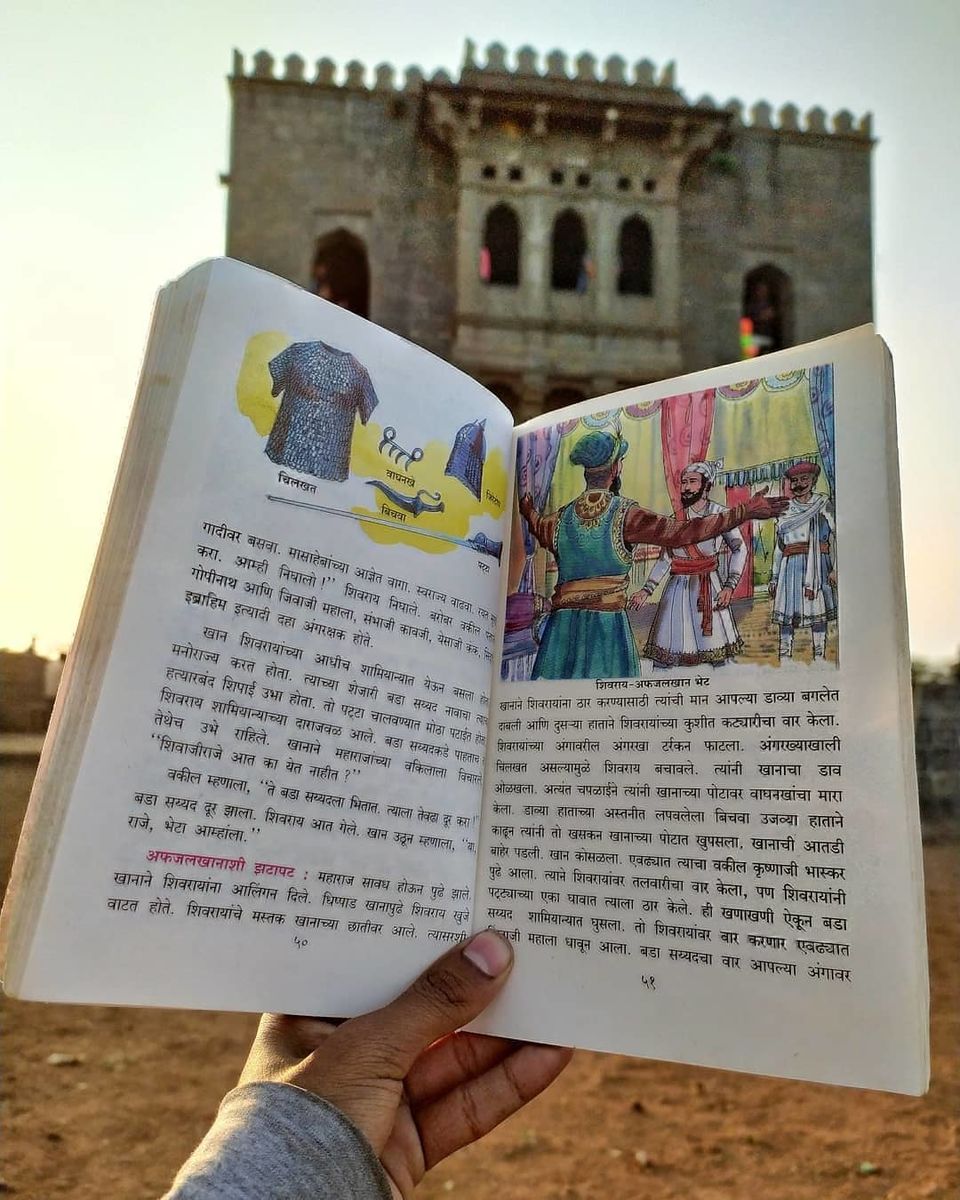 चिलखत
वाघनखे
बिचवा
पट्टा
गादीवर बसवा. मासाहेबांच्या आज्ञेत वागा. स्वराज्य वाढवा. रयत
करा. आम्ही निघालो !’’ शिवराय निघाले. बरोबर वकील
गोपीनाथ आणि जिवाजी महाला, संभाजी कावजी, येसाजी कंक,
इब्राहिम इत्यादी दहा अंगरक्षक होते.
खान शिवरायांच्या आधीच शामियान्यात येऊन बसला
मनोराज्य करत होता. त्याच्या शेजारी बडा सय्यद नावाचा
हत्यारबंद शिपाई उभा होता. तो पट्टा चालवण्यात मोठा पटाईत
शिवराय शामियान्याच्या दाराजवळ आले. बडा सय्यदकडे पाहताच
तेथेच उभे राहिले. खानाने महाराजांच्या वकिलाला विचारले
‘‘शिवाजीराजे आत का येत नाहीत ?’’
वकील म्हणाला, ‘‘ते बडा सय्यदला भितात. त्याला तेवढा दूर करा.
बडा सय्यद दूर झाला. शिवराय आत गेले. खान उठून म्हणाला,
राजे, भेटा आम्हांला.’’
अफजलखानाशी झटापट : महाराज सावध होऊन पुढे झाले.
खानाने शिवरायांना आलिंगन दिले. धिप्पाड खानापुढे शिवराय खुजे
वाटत होते. शिवरायांचे मस्तक खानाच्या छातीवर आले. त्यासरशी
५०
शिवराय-अफजलखान भेट
खानाने शिवरायांना ठार करण्यासाठी त्यांची मान आपल्या डाव्या बगलेत
दाबली आणि दुसऱ्या हाताने शिवरायांच्या कुशीत कट्यारीचा वार केला.
शिवरायांच्या अंगावरील अंगरखा टर्रकन फाटला. अंगरख्याखाली
चिलखत असल्यामुळे शिवराय बचावले. त्यांनी खानाचा डाव
ओळखला. अत्यंत चपळाईने त्यांनी खानाच्या पोटावर वाघनखांचा मारा
केला. डाव्या हाताच्या अस्तनीत लपवलेला बिचवा उजव्या हाताने
काढून त्यांनी तो खसकन खानाच्या पोटात खुपसला, खानाची आतडी
बाहेर पडली. खान कोसळला. एवढ्यात त्याचा वकील कृष्णाजी भास्कर
पुढे आला. त्याने शिवरायांवर तलवारीचा वार केला, पण शिवरायांनी
पट्ट्याच्या एका घावात त्याला ठार केले. ही खणाखणी ऐकून बडा
सय्यद शामियान्यात घुसला. तो शिवरायांवर वार करणार एवढ्यात
महाला धावून आला. बडा सय्यदचा वार आपल्या अंगावर
५१